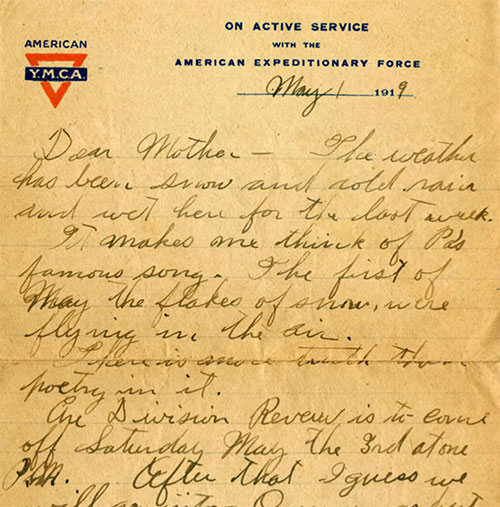 ON ACTIVE SERVICE
WITH THE
AMERICAN EXPEDITIONARY FORCE
AMERICAN
Y.M.C.A.
May 1 1919
Dear Mother — The weather
has been snow and cold rain
and wet here for the last week.
It makes me think of Pa's
famous song. The first of
May the flakes of snow, were
flying in the air.
There is more truth than
poetry in it.
Our Division Review is to come
off Saturday May the 3rd at one
P.M. After that I guess we
will go into